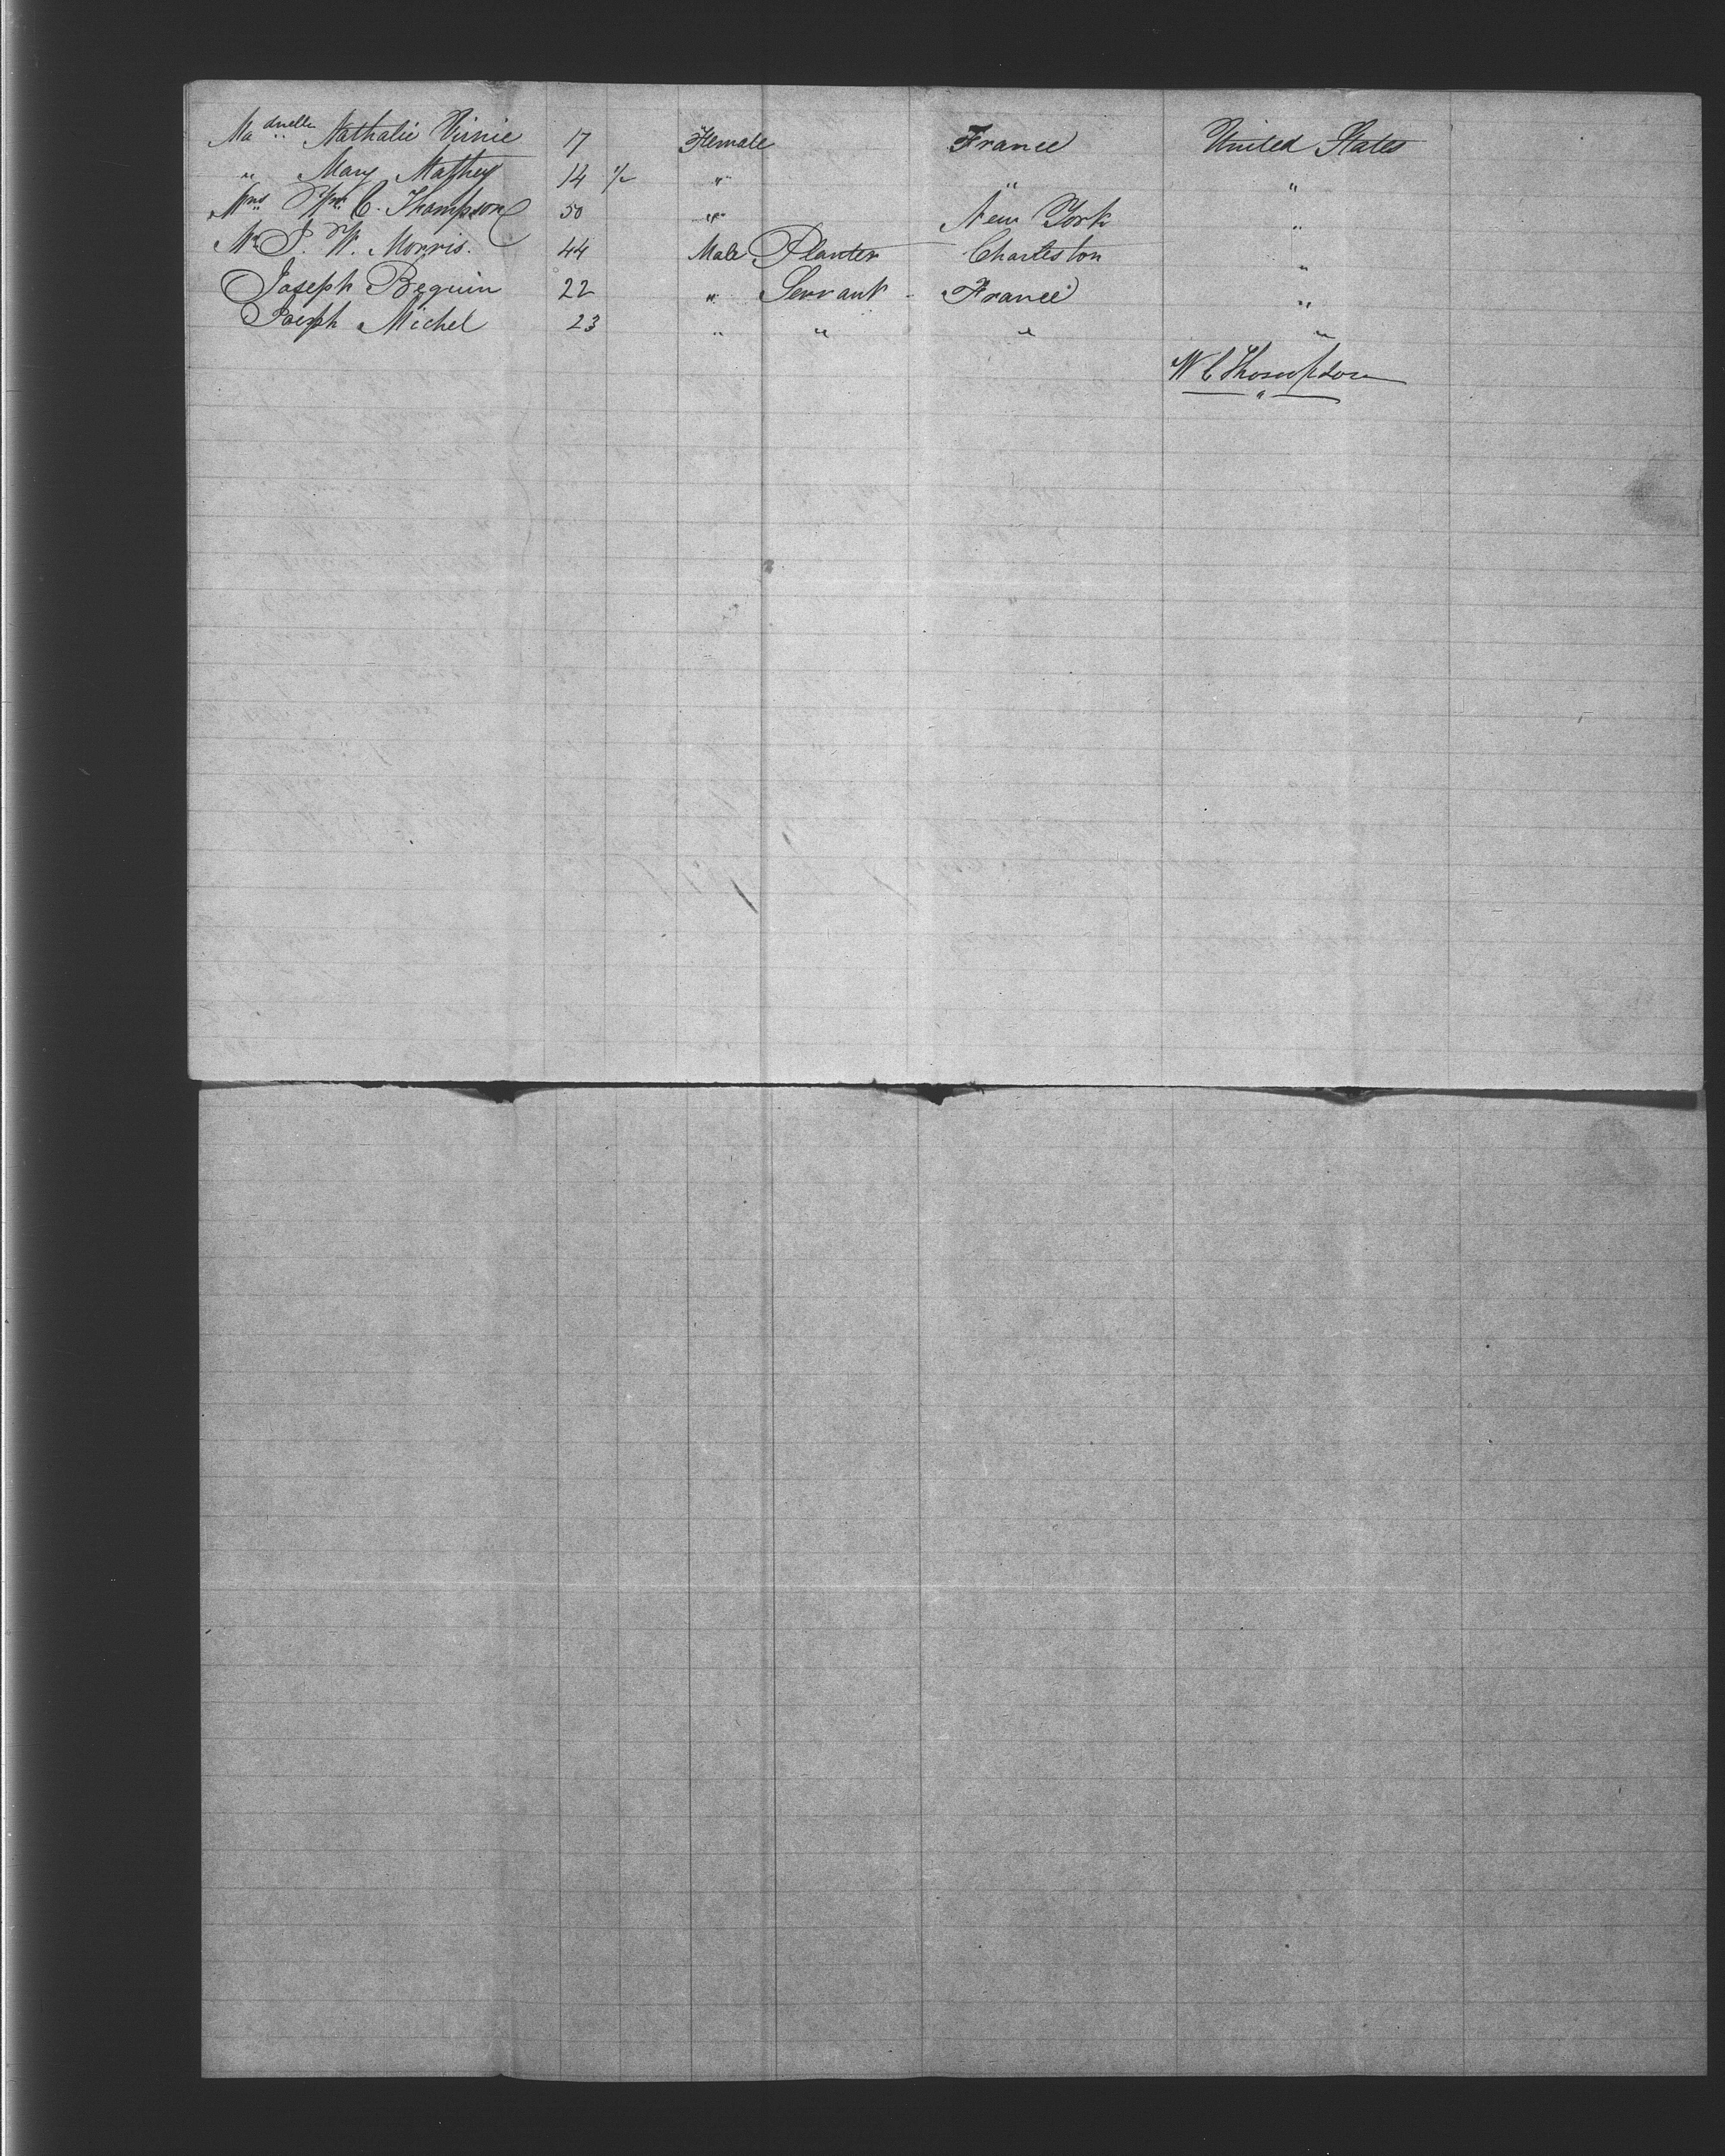 Madmelle Nathalie Virnie 17 Female France United States
" Mary Mathey 14 1/2 " " "
Mrs Wm C. Thompson 50 " New York "
Mr J. W. Morris. 44 Male Planter Charleston "
Joseph Beguin 22 " Servant - France "
Joseph Michel 23 " " " "
W C Thompson